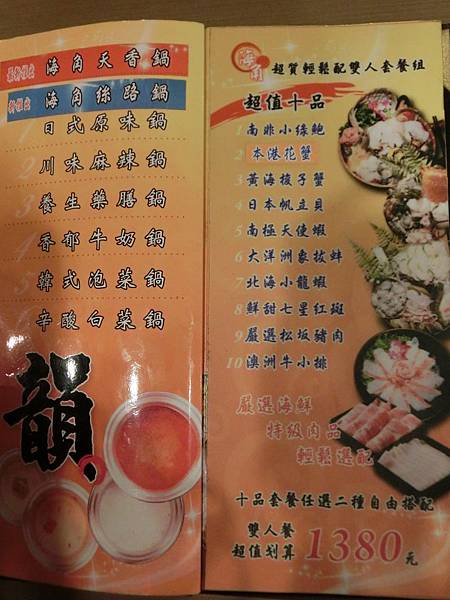 海角天香鍋
海角絲路鍋
1 日式原味鍋
2 川味麻辣鍋
3 養生藥膳鍋
4 香郁牛奶鍋
5 韓式泡菜鍋
6 辛酸白菜鍋
韻
海角 超質輕鬆配雙人套餐組
超值十品
1 南非小綠鮑
2 本港花蟹
3 黃海梭子蟹
4 日本帆立貝
5 南極天使蝦
6 大洋洲象拔蚌
7 北海小龍蝦
8 鮮甜七星紅斑
9 嚴選松坂豬肉
10 澳洲牛小排
嚴選海鮮
特級肉品
輕鬆選配
十品套餐任選二種自由搭配
雙人餐
超值划算 1380元